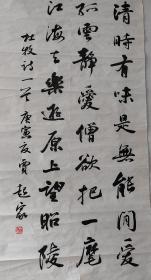 清時有味是無能閒愛
孤雲靜愛僧欲把一麾
江海去樂遊原上望昭陵
杜牧诗一首 庚寅夏賈起家